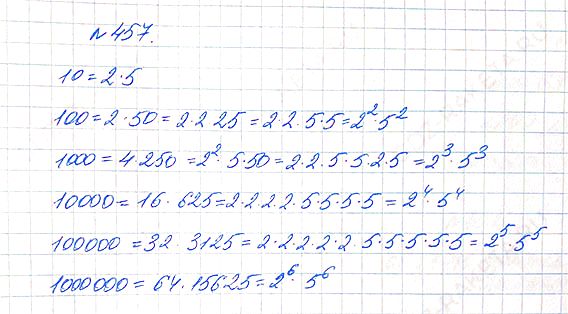 №457.
10=2·5
100=2·50=2·2·25=2·2·5·5=2²·5²
1000=4·250=2²·5·50=2·2·5·5·2·5=2³·5³
10000=16·625=2·2·2·2·5·5·5·5=2⁴·5⁴
100000=32·3125=2·2·2·2·2·5·5·5·5·5=2⁵·5⁵
1000000=64·15625=2⁶·5⁶